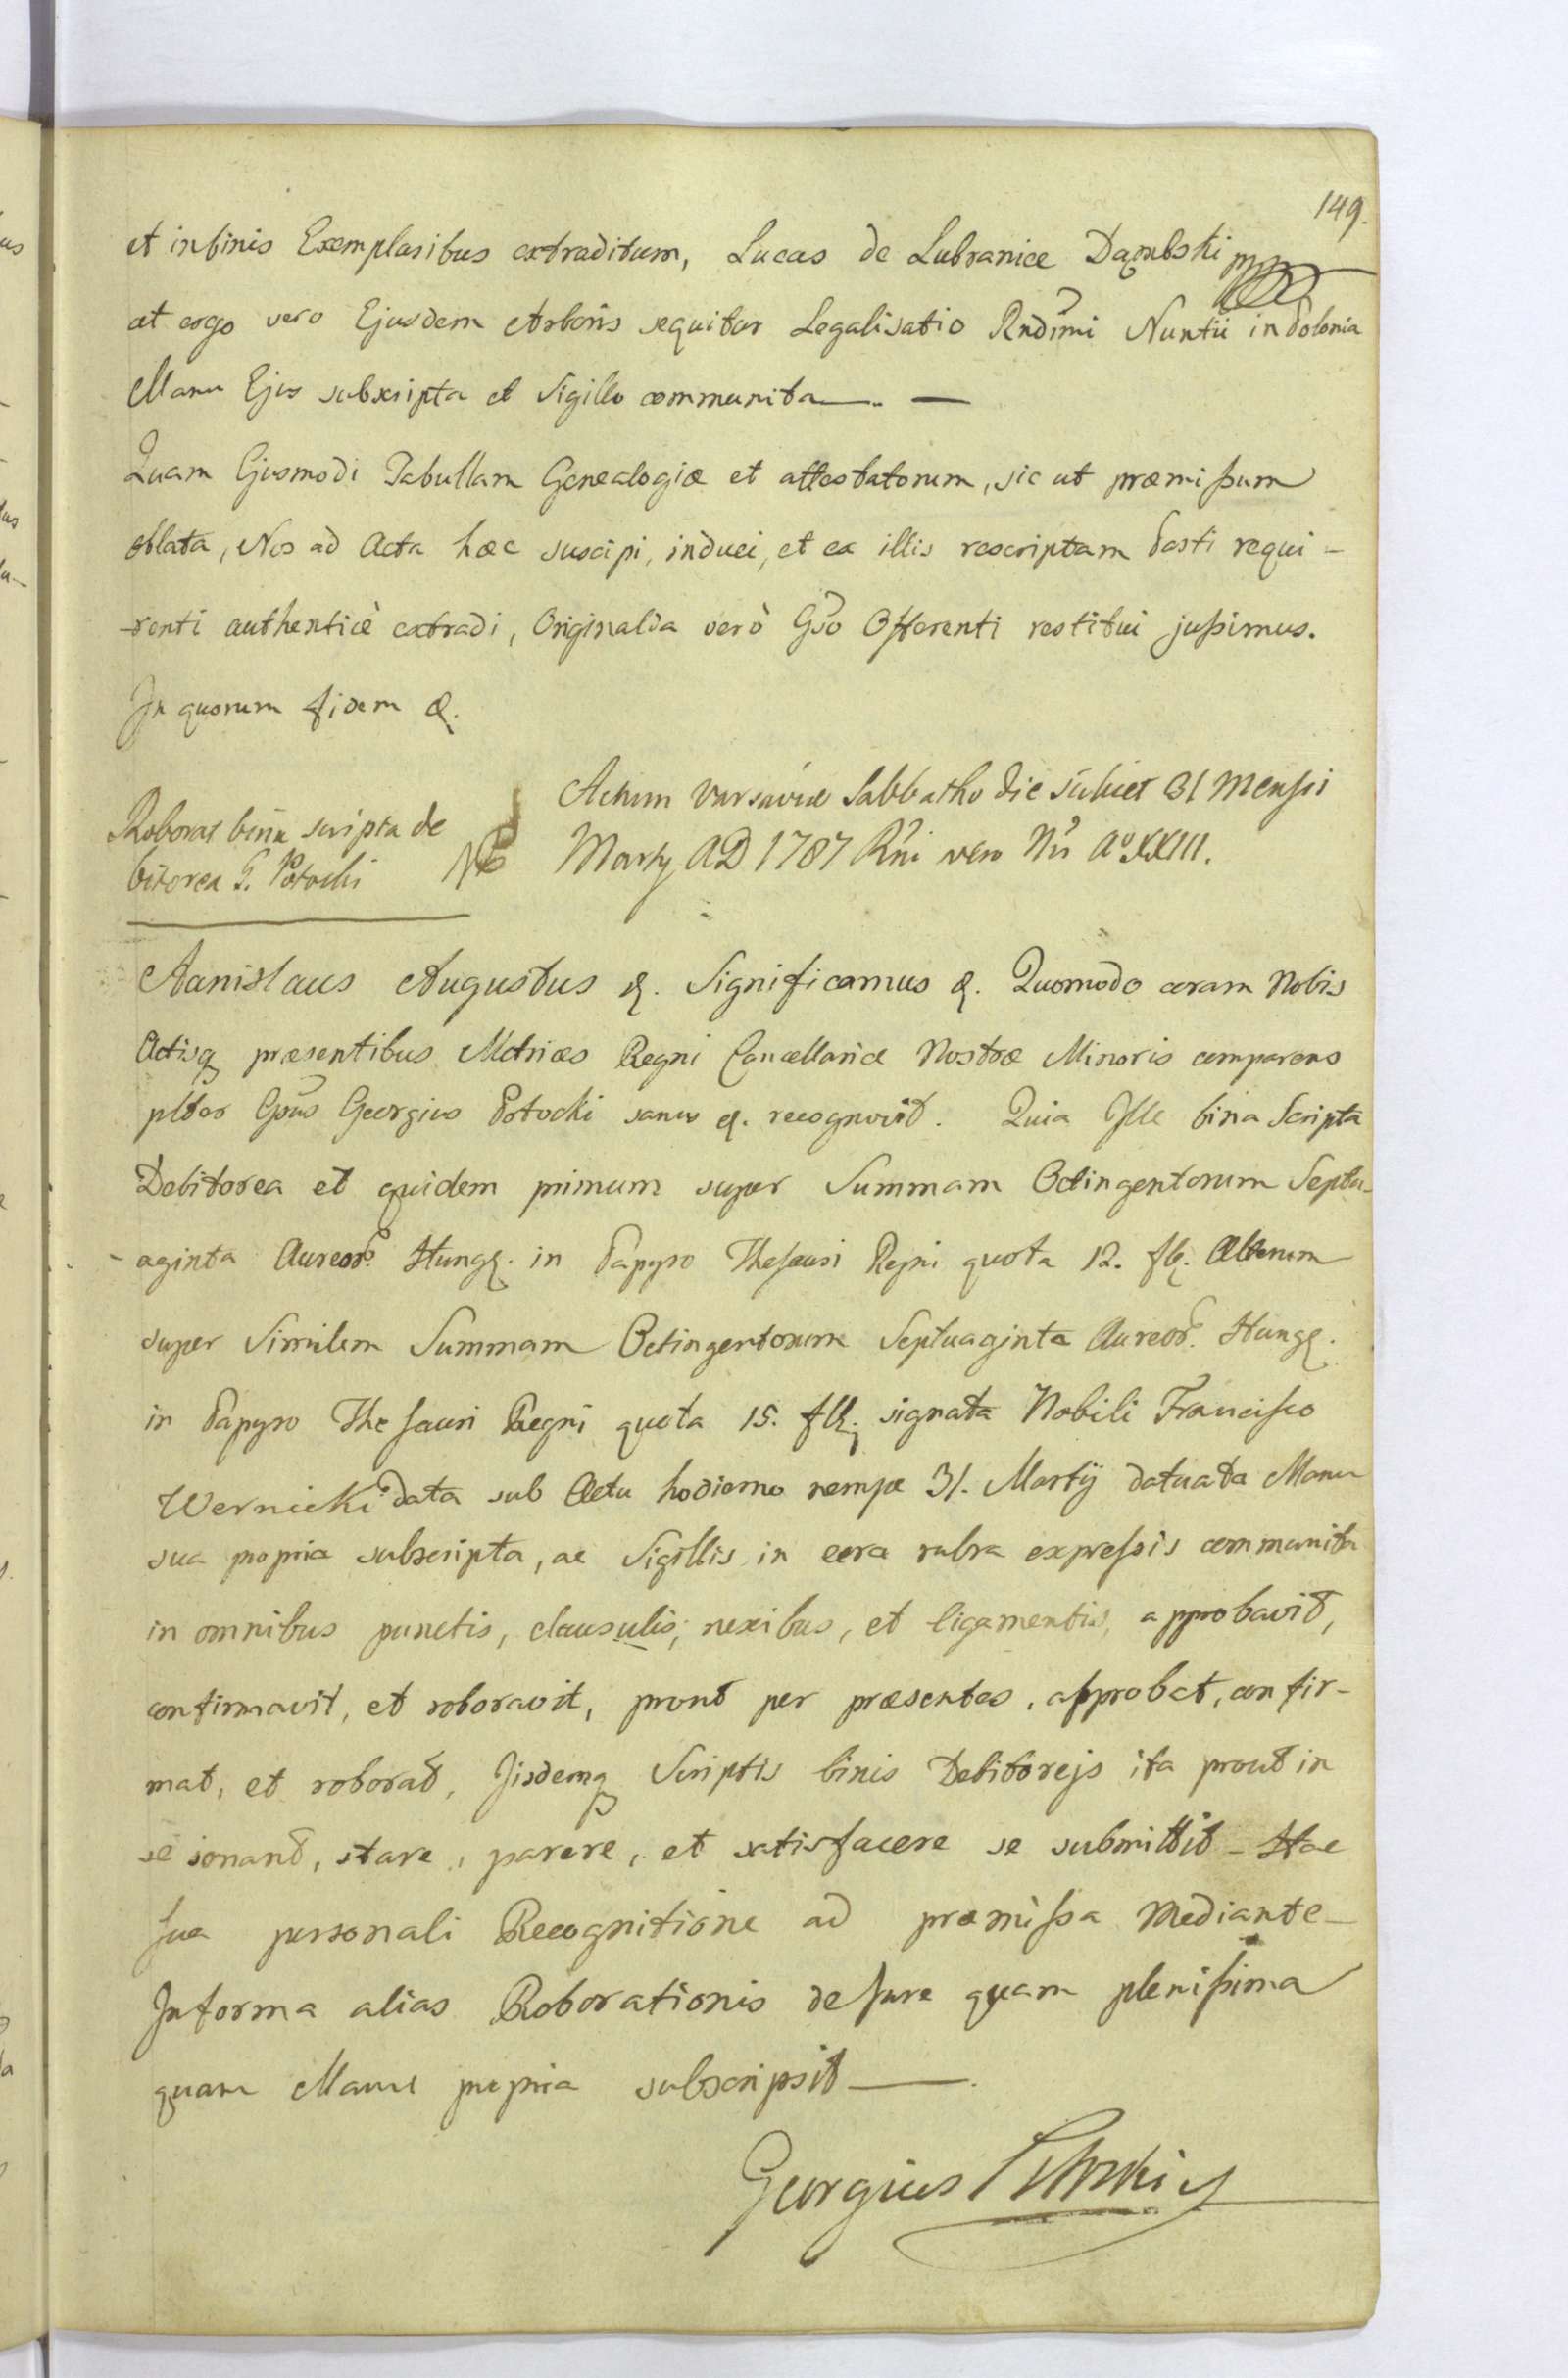 149.
et in binis Exemplaribus extraditum, Lucas de Lubranice Dąmbski mp
at ergo vero Ejusdem Arboris sequitur Legalisatio Rndĩmi Nuntii in Polonia
Manu Ejus subscripta et Sigillo communita —. —
Quam Ejusmodi Tabullam Genealogiæ et attestatorum, sic ut præmissum
oblata, Nos ad Acta hæc suscipi, induci, et ex illis rescriptam Parti requi-
-renti authenticè extradi, Originalia verò Gso Offerenti restitui jussimus.
In quorum fidem &.
Roborat bina scripta de
bitorea G. Potocki
Actum Varsaviæ Sabbatho die scilicet 31 Mensis
Martij AD 1787 Rni vero Nri Aº XXIII.
Stanislaus Augustus &. Significamus &. Quomodo coram Nobis
Actisq præsentibus Metrices Regni Cancellariæ Nostræ Minoris comparens
pltes Gsus Georgius Potocki sanus &. recognovit. Quia Ille bina Scripta
Debitorea et quidem primum super Summam Octingentorum Septu-
-aginta Aureor. Hung. in Papyro Thesauri Regni quota 12. flr. Alterum
super Similem Summam Octingentorum Septuaginta Aureor. Hung.
in Papyro Thesauri Regni quota 15. flr. signata Nobili Francisco
Wernicki data sub Actu hodierno nempe 31. Martij datuata Manu
sua propria subscripta, ac Sigillis in cera rubra expressis communita
in omnibus punctis, clausulis, nexibus, et ligamentis, approbavit,
confirmavit, et roboravit, prout per præsentes, approbat, confir-
mat, et roborat, Iisdemq Scriptis binis Debitorejs ita prout in
se sonant, stare, parere, et satisfacere se submittit – Hac
sua personali Recognitione ad præmissa Mediante –
Informa alias Roborationis de Jure quam plenissima
quam Manu propria subscripsit —.
Georgius Potocki